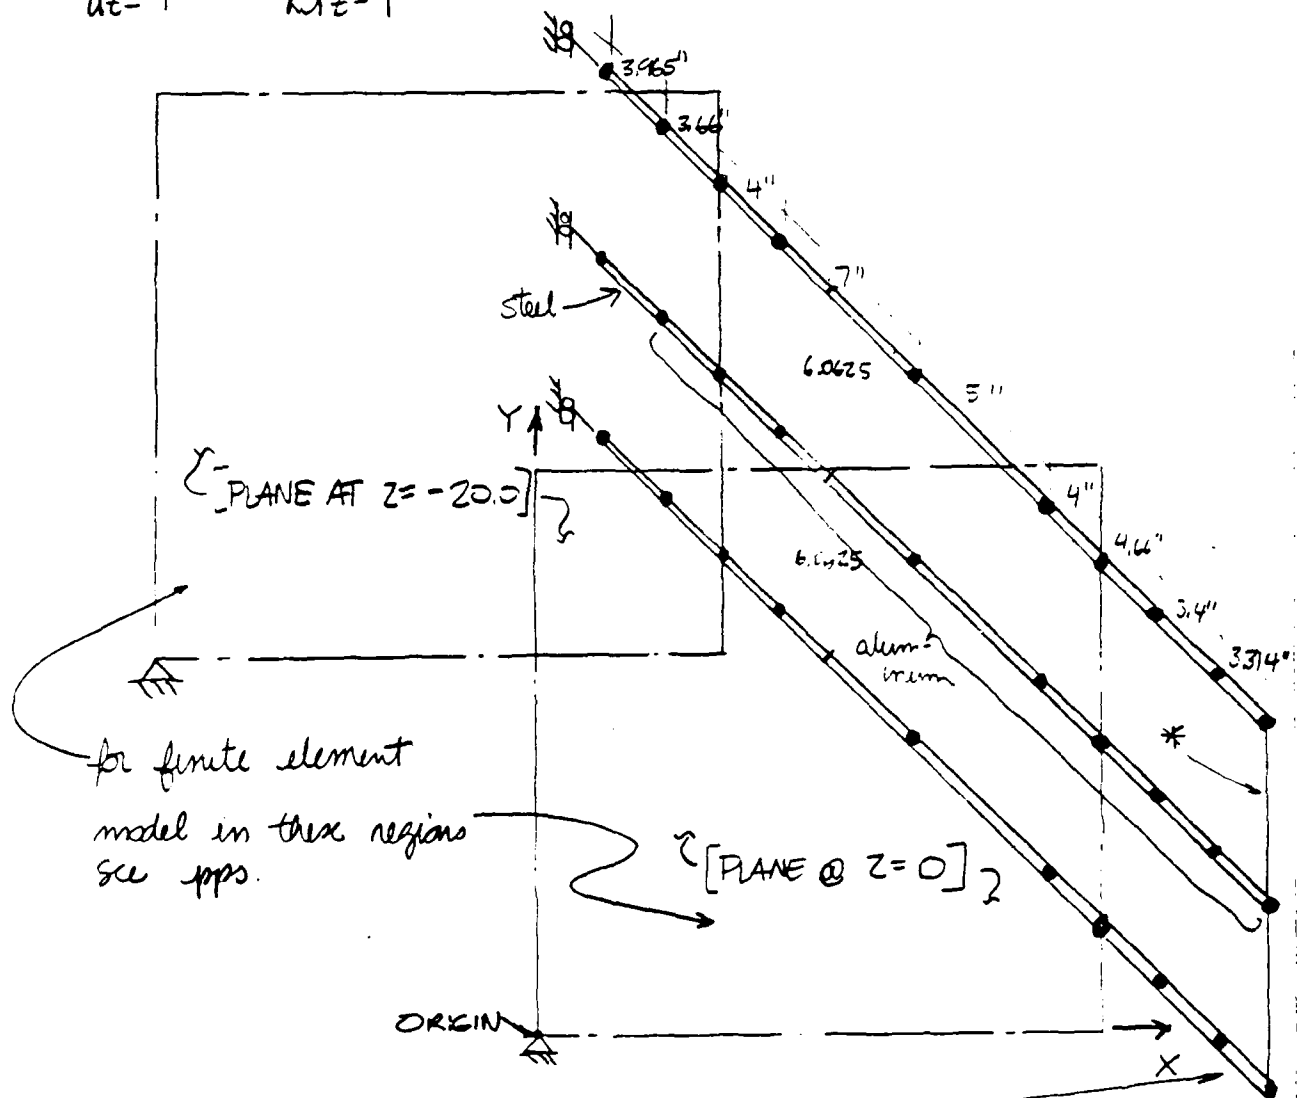 3.965"
3.66"
4"
7"
steel
6.0625
5"
Y
[PLANE AT Z= -20.0]
4"
4.66"
3.4"
alum-
inum
3.314"
*
for finite element
model in these regions
see pps.
[PLANE @ Z=0]
ORIGIN
X